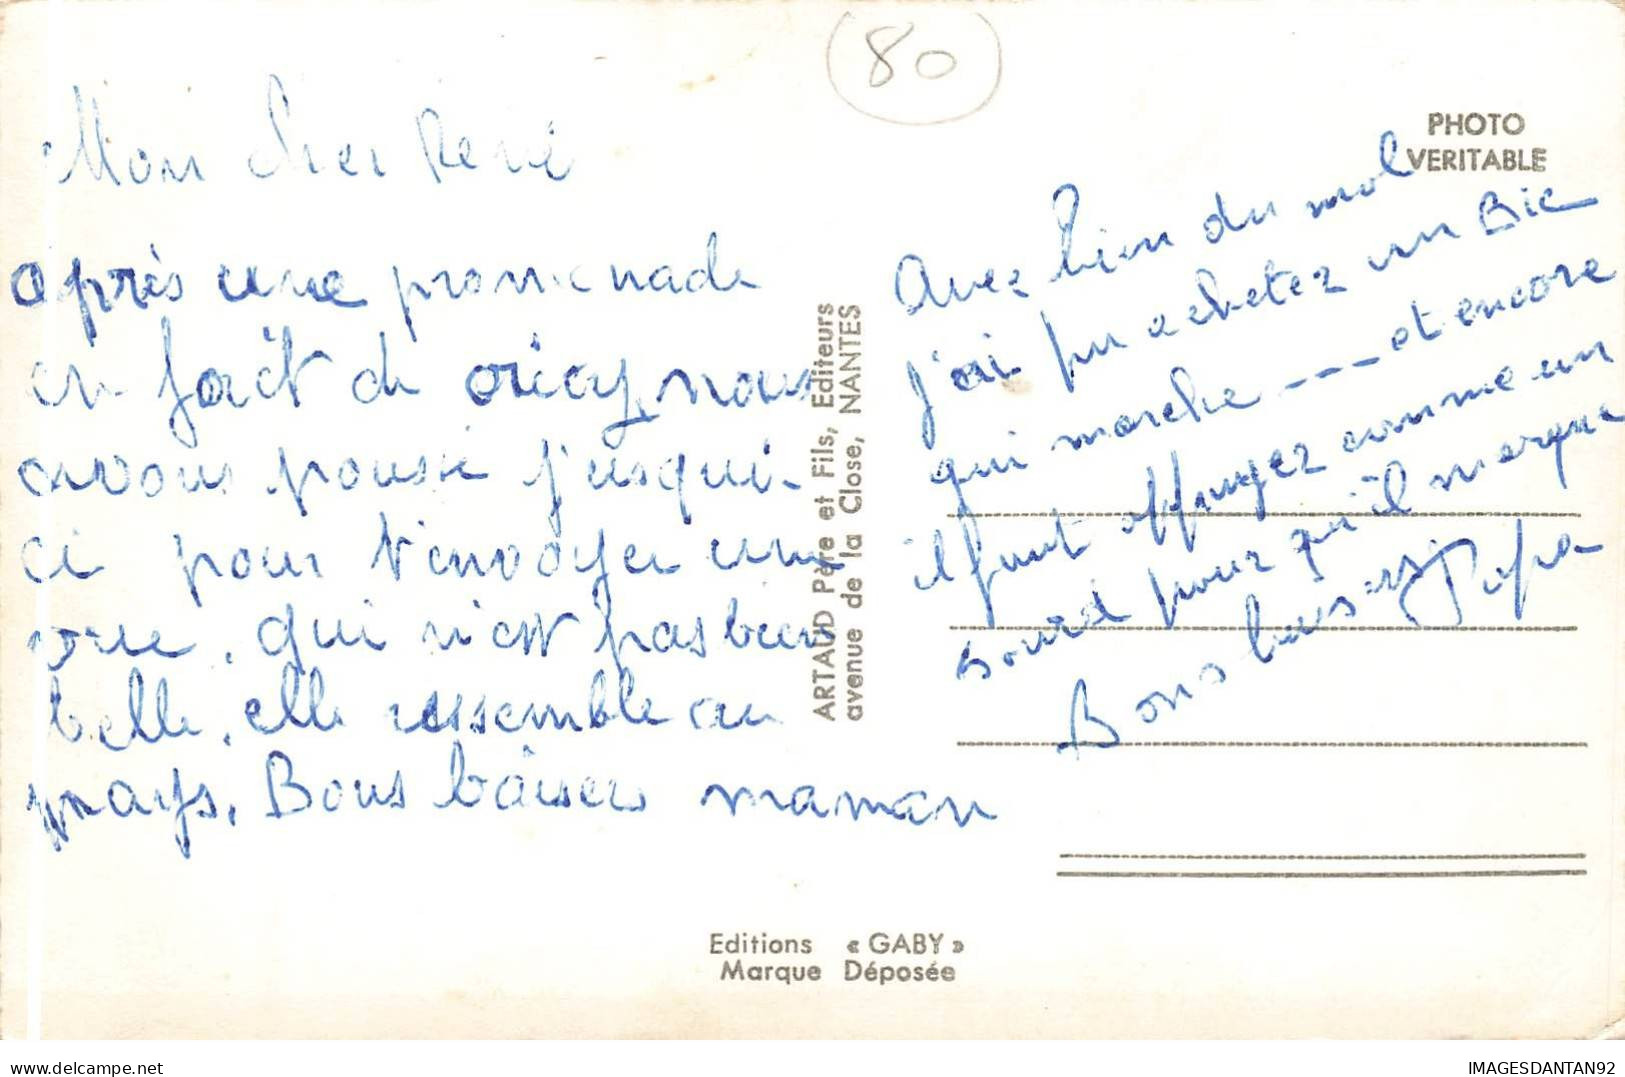 80
PHOTO
VERITABLE
Mon cher René
après une promenade
en forêt de créçy, nous
avons poussé j'usqui-
ci pour t'envoyer une
vue. qui n'est pas bien
belle, elle ressemble au
pays. Bons baisers maman
ARTAUD Père et Fils, Editeurs
avenue de la Close, NANTES
Avec bien du mal
j'ai pu acheter un Bic
qui marche --- et encore
il faut appuyer comme un
sourd pour qu'il marque
Bons baisers Papa
Editions « GABY »
Marque Déposée
IMAGESDANTAN92